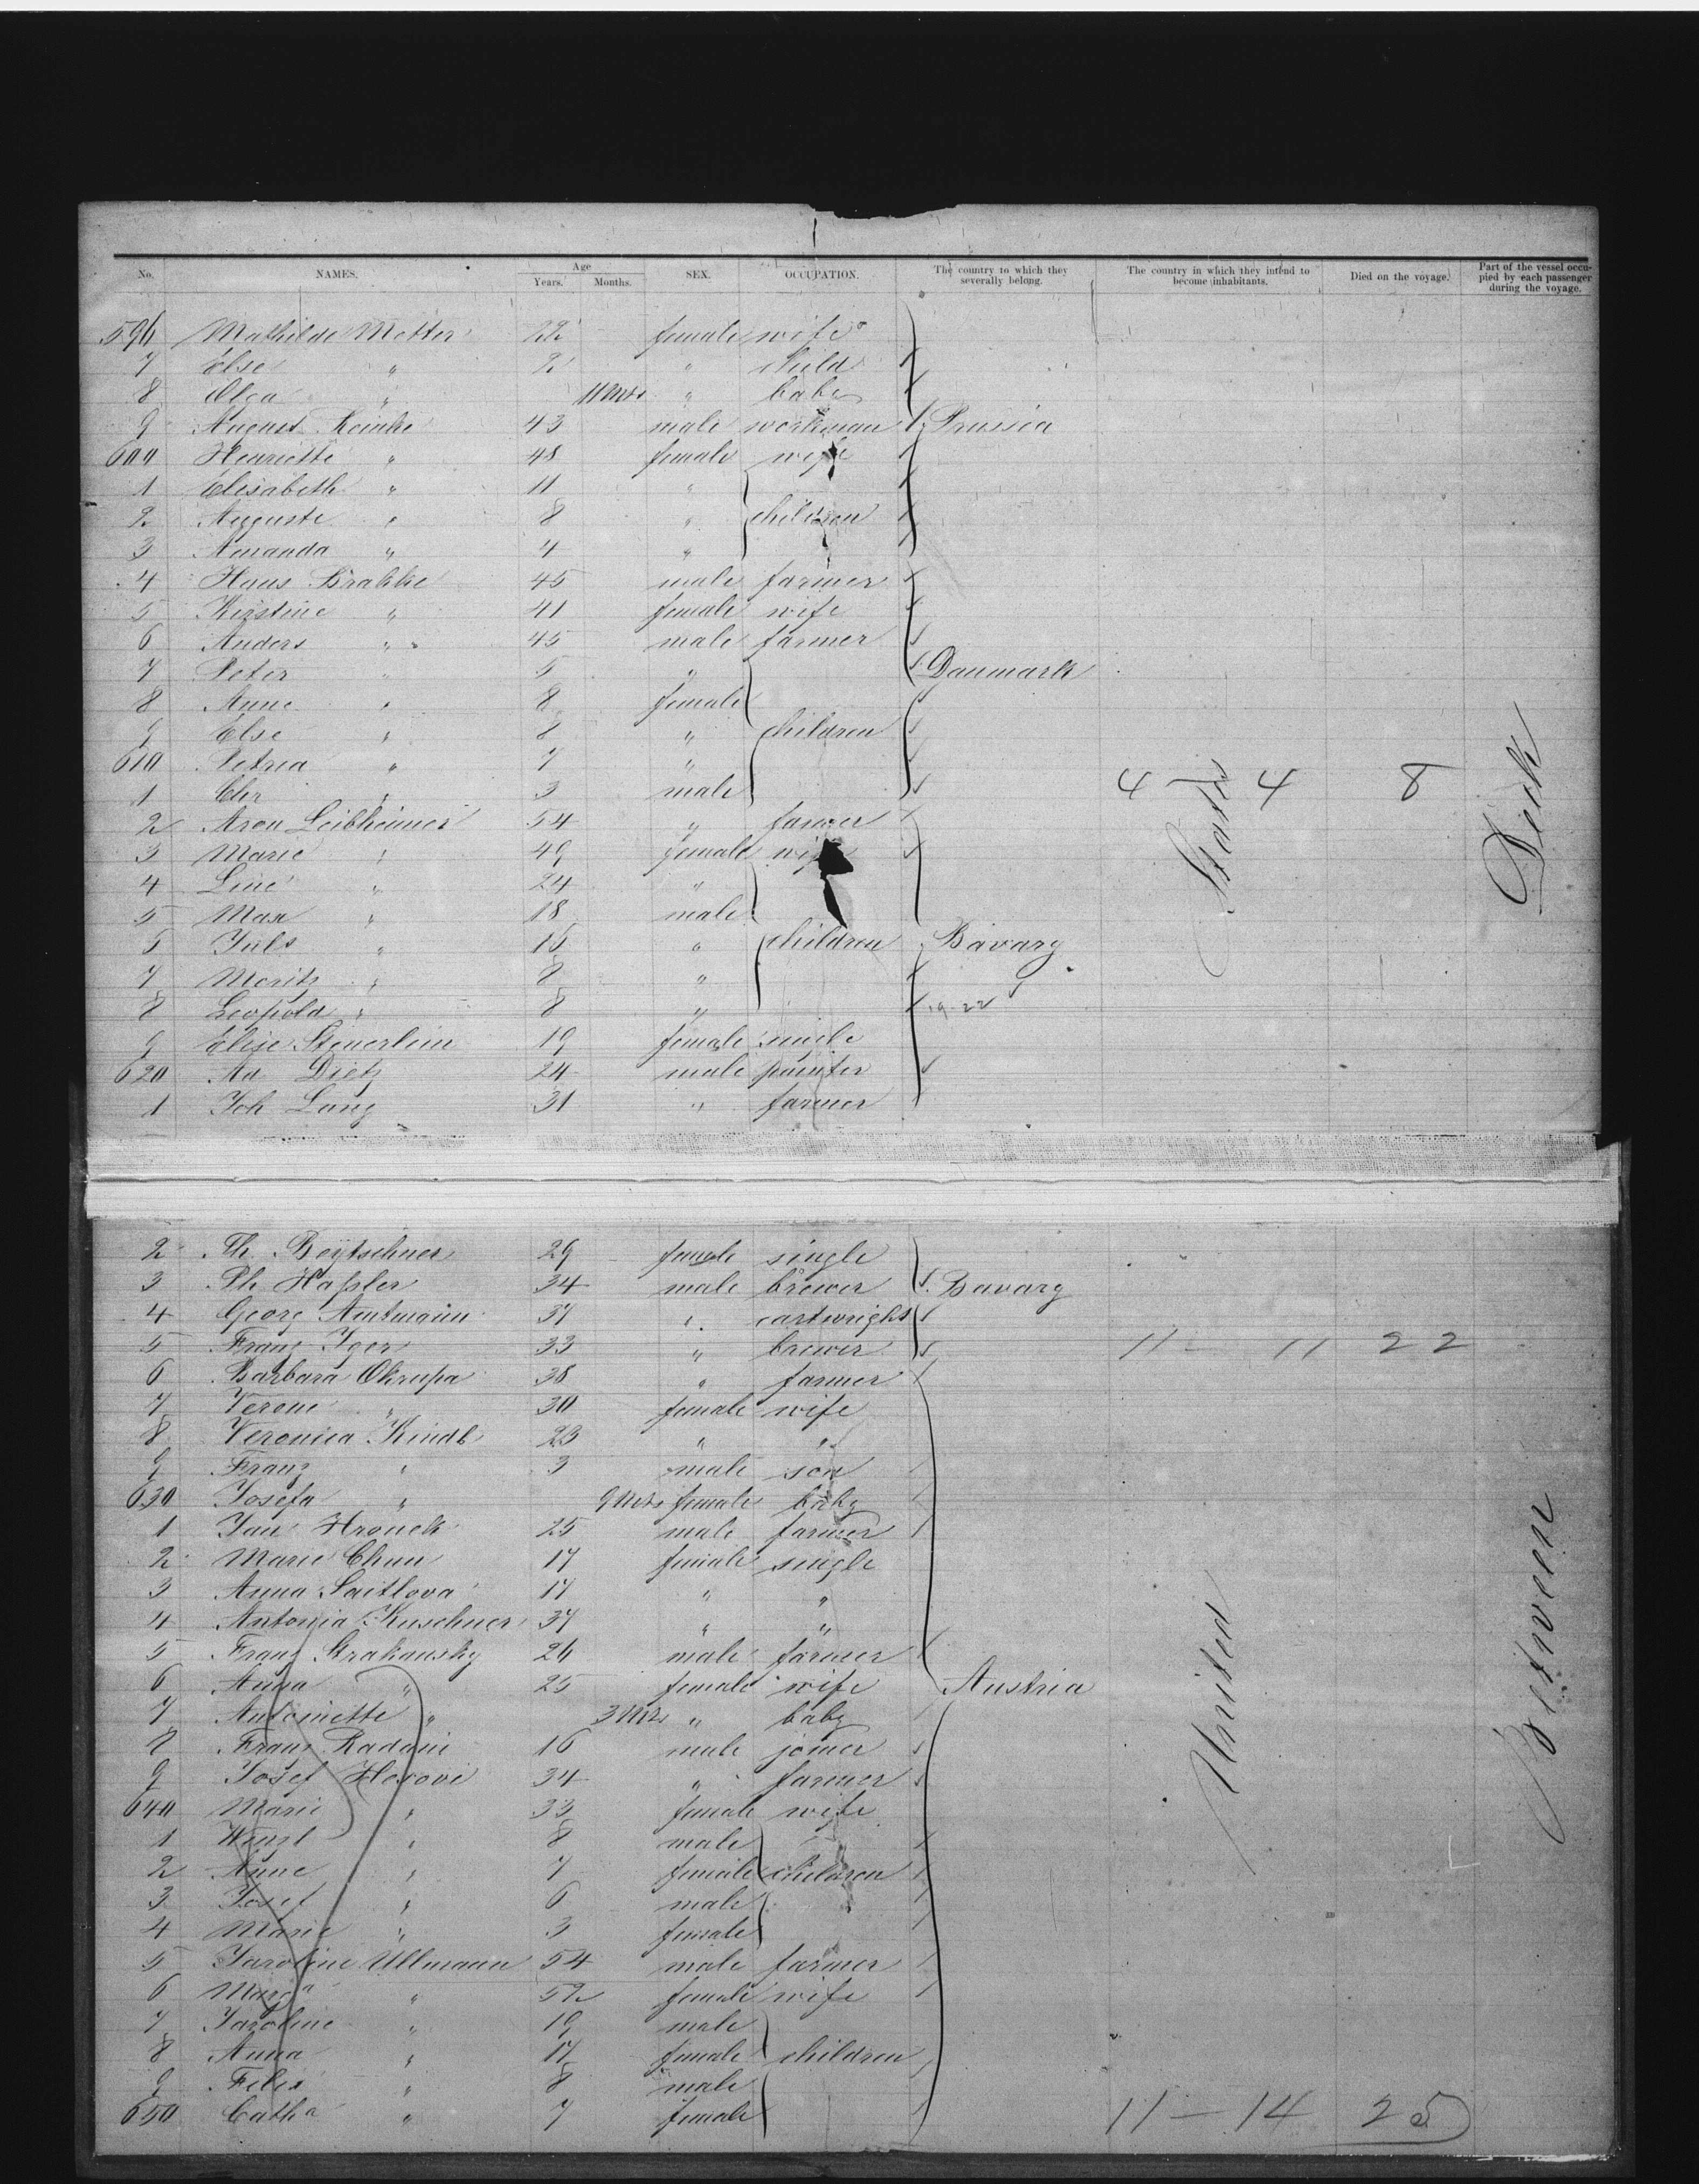 No. NAMES. Age Years. Months. SEX. OCCUPATION. The country to which they severally belong. The country in which they intend to become inhabitants. Died on the voyage. Part of the vessel occupied by each passenger during the voyage.
596 Mathilde Metter 22 female wife
7 Else " 2 " child
8 Olga " 11 Mts " baby
9 August Reinke 43 male workman Prussia
600 Henriette " 48 female wife
1 Elisabeth " 11 "
2 Auguste " 8 " children
3 Amanda " 4 "
4 Hans Brakke 45 male farmer
5 Kirstine " 41 female wife
6 Anders " 45 male farmer
7 Peter " 5 " Danmark
8 Anne " 8 female
9 Else " 8 " children
610 Petrea " 7 "
1 Chr " 3 male 4 4 8
2 Aron Leibheimer 54 " farmer
3 Marie " 49 female wife
4 Line " 24 "
5 Max " 18 male
6 Juls " 16 " children Bavary
7 Moritz " 8 "
8 Leopold " 8 " 19-22
9 Elise Steuerlein 19 female single
620 Ad Dietz 24 male painter
1 Joh Lang 31 " farmer
States
Deck
2 Th. Beytschner 29 female single
3 Ph Haßler 34 male brewer Bavary
4 Georg Amtmann 37 " cartwright
5 Franz Iger 33 " brewer 11 - 11 22
6 Barbara Okrupa 38 " farmer
7 Verone " 30 female wife
8 Veronica Kindl 23 " "
9 Franz " 3 male son
630 Josefa " 9 Mts female baby
1 Jan Hronek 25 male farmer
2 Marie Chun 17 female single
3 Anna Saitlova 17 " "
4 Antonia Kuschner 37 " "
5 Franz Strakansky 26 male farmer
6 Anna " 25 female wife Austria
7 Antoinette " 3 Mts " baby
8 Franz Radani 16 male joiner
9 Josef Horovi 34 " farmer
640 Marie " 33 female wife
1 Wenzl " 8 male
2 Anne " 7 female children
3 Josef " 6 male
4 Marie " 3 female
5 Jaroline Ullmann 54 male farmer
6 Marga " 52 female wife
7 Jaroline " 19 male
8 Anna " 17 female children
9 Felix " 8 male
650 Catha " 7 female 11 - 14 25
United
Between